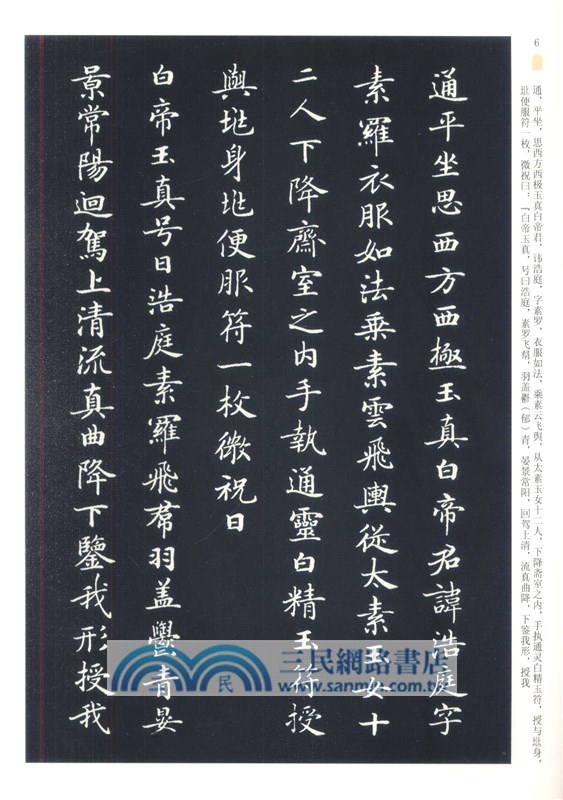 6
通，平坐，思西方西极玉真白帝君，讳浩庭，字素罗，衣服如法，乘素云飞舆，从太素玉女十二人，下降斋室之内，手执通灵白精玉符，授与玭身，
玭便服符一枚，微祝曰：「白帝玉真，号曰浩庭，素罗飞帬，羽盖郁（郁）青，晏景常阳，回驾上清，流真曲降，下鉴我形，授我
通平坐思西方西極玉真白帝君諱浩庭字
素羅衣服如法乘素雲飛輿從太素玉女十
二人下降齋室之内手執通靈白精玉符授
與玭身玭便服符一枚微祝曰
白帝玉真号曰浩庭素羅飛帬羽盖鬱青晏
景常陽迴駕上清流真曲降下鑒我形授我
三民網路書店
www.sanmin.com.tw
民